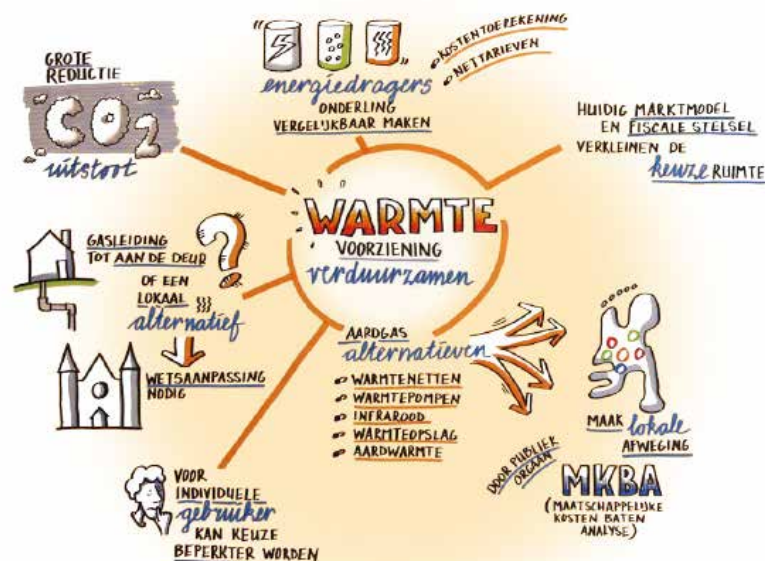 GROTE
REDUCTIE
CO2
uitstoot
energiedragers
ONDERLING
VERGELIJKBAAR MAKEN
KOSTENTOEREKENING
NETTARIEVEN
HUIDIG MARKTMODEL
EN FISCALE STELSEL
VERKLEINEN DE
keuze RUIMTE
WARMTE
VOORZIENING
verduurzamen
GASLEIDING
TOT AAN DE DEUR
?
OF EEN
LOKAAL
alternatief
WETSAANPASSING
NODIG
AARDGAS
alternatieven
WARMTENETTEN
WARMTEPOMPEN
INFRAROOD
WARMTEOPSLAG
AARDWARMTE
MAAK lokale
AFWEGING
DOOR PUBLIEK
ORGAAN
MKBA
(MAATSCHAPPELIJKE
KOSTEN BATEN
ANALYSE)
VOOR
INDIVIDUELE
gebruiker
KAN KEUZE
BEPERKTER WORDEN